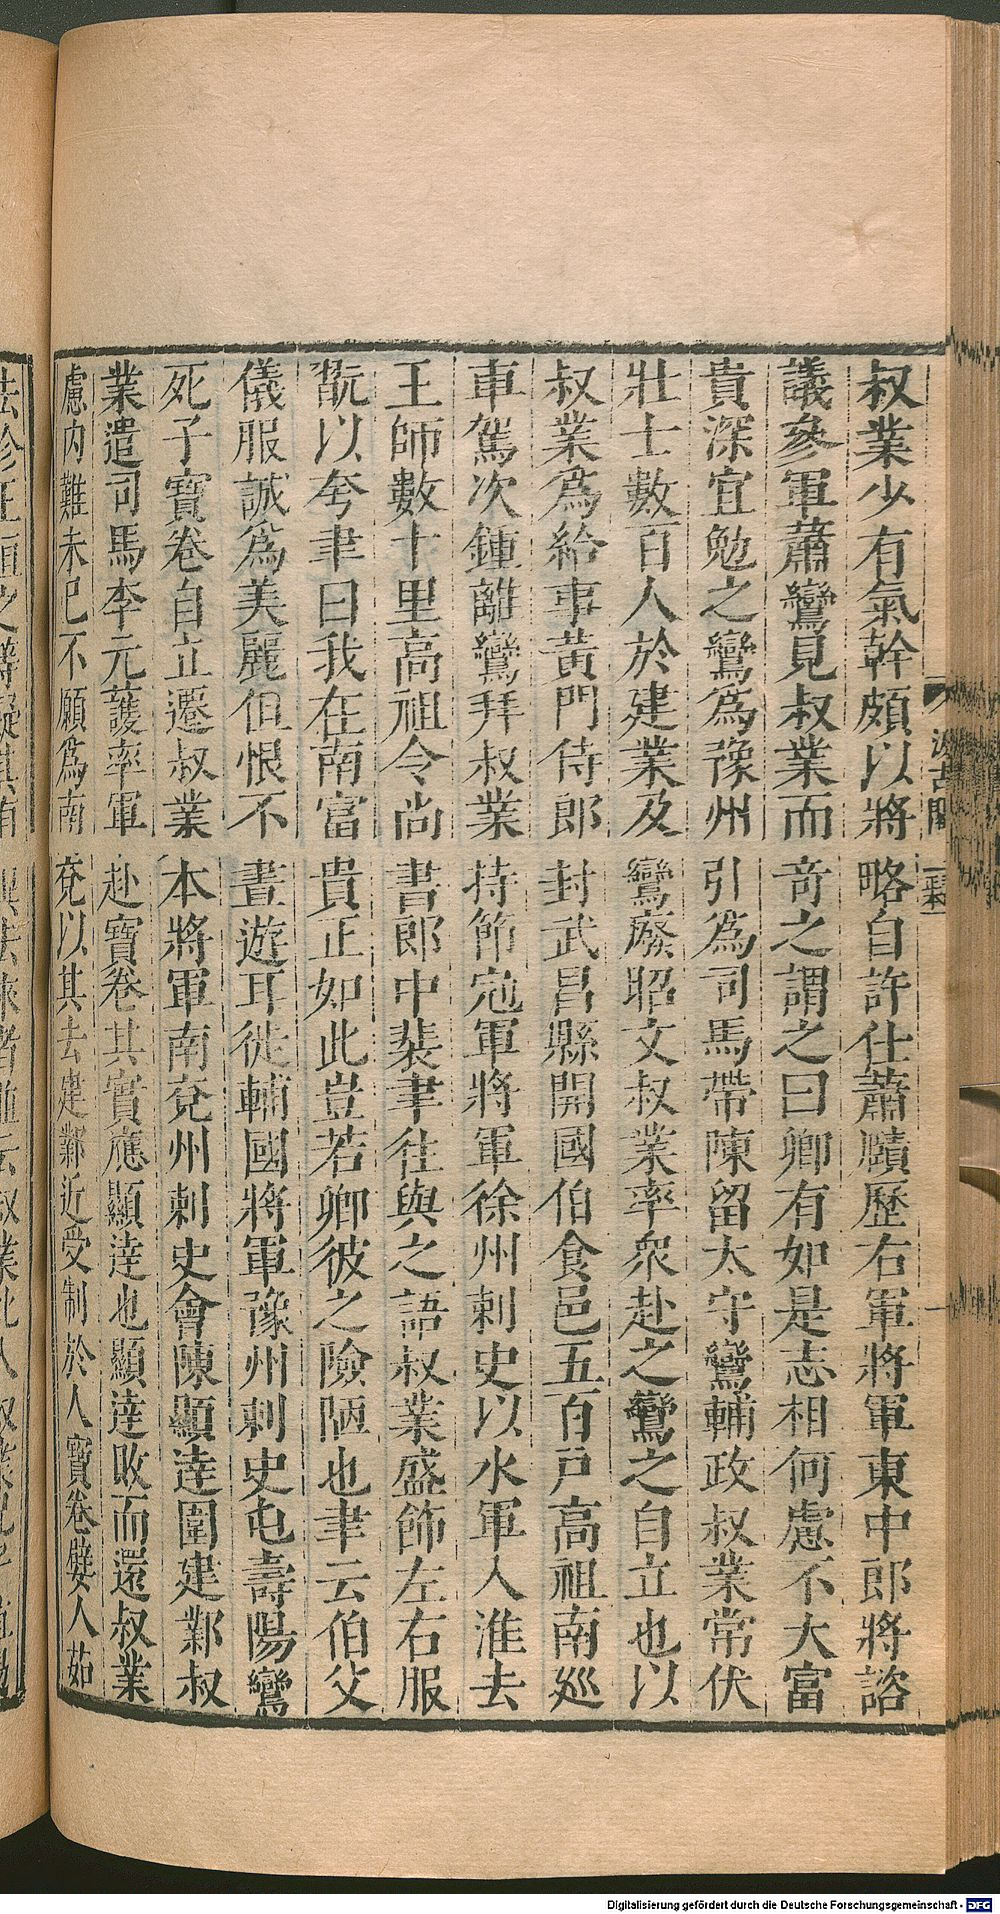 叔業少有氣幹頗以將略自許仕蕭賾歷右軍將軍東中郎將諮
議參軍蕭鸞見叔業而竒之謂之曰卿有如是志相何慮不大富
貴深宜勉之鸞爲豫州引爲司馬帶陳留太守鸞輔政叔業常伏
壯士數百人於建業及鸞廢昭文叔業率衆赴之鸞之自立也以
叔業爲給事黃門侍郎封武昌縣開國伯食邑五百戸高祖南廵
車駕次鍾離鸞拜叔業持節冠軍將軍徐州刺史以水軍入淮去
王師數十里高祖令尚書郎中裴聿往與之語叔業盛飾左右服
翫以夸聿曰我在南富貴正如此豈若卿彼之險陋也聿云伯父
儀服誠爲美麗但恨不晝遊耳徙輔國將軍豫州刺史屯壽陽鸞
死子寶卷自立遷叔業本將軍南兗州刺史會陳顯達圍建鄴叔
業遣司馬李元護率軍赴寶卷其實應顯達也顯達敗而還叔業
慮内難未已不願爲南兗以其去建鄴近受制於人寶卷嬖人茹
汲古閣
Digitalisierung gefördert durch die Deutsche Forschungsgemeinschaft - DFG